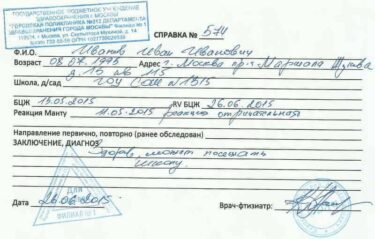 ГОСУДАРСТВЕННОЕ БЮДЖЕТНОЕ УЧРЕЖДЕНИЕ
ЗДРАВООХРАНЕНИЯ Г. МОСКВЫ
"ГОРОДСКАЯ ПОЛИКЛИНИКА №212 ДЕПАРТАМЕНТА
ЗДРАВООХРАНЕНИЯ ГОРОДА МОСКВЫ" Филиал № 1
СПРАВКА № 574
Ф.И.О. Иванов Иван Иванович
Возраст 08.07.1995 Адрес г. Москва пр-т Маршала Жукова
д. 15 кв 115
Школа, д/сад ГОУ СОШ № 1315
БЦЖ 15.05.2015 RV БЦЖ 26.06.2015
Реакция Манту 11.05.2015 реакция отрицательная
Направление первично, повторно (ранее обследован)
ЗАКЛЮЧЕНИЕ, ДИАГНОЗ
Здоров, может посещать
школу.
Для
ФИЛИАЛ № 1
Дата 26.06.2015 Врач-фтизиатр: